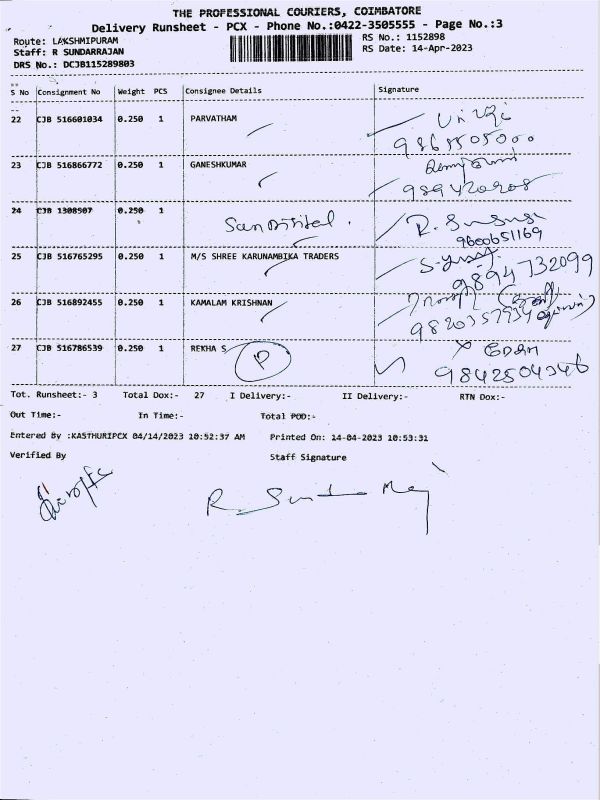 THE PROFESSIONAL COURIERS, COIMBATORE
Delivery Runsheet - PCX - Phone No.:0422-3505555 - Page No.:3
Route: LAKSHMIPURAM
RS No.: 1152898
Staff: R SUNDARRAJAN
RS Date: 14-Apr-2023
DRS No.: DCJB115289803
S No Consignment No Weight PCS Consignee Details Signature
22 CJB 516601034 0.250 1 PARVATHAM
23 CJB 516866772 0.250 1 GANESHKUMAR
24 CJB 1308507 0.250 1
R.
9600651169
25 CJB 516765295 0.250 1 M/S SHREE KARUNAMBIKA TRADERS
9894732099
26 CJB 516892455 0.250 1 KAMALAM KRISHNAN
27 CJB 516786539 0.250 1 REKHA S P
Tot. Runsheet:- 3 Total Dox:- 27 I Delivery:- II Delivery:- RTN Dox:-
Out Time:- In Time:- Total POD:-
Entered By :KASTHURIPCX 04/14/2023 10:52:37 AM Printed On: 14-04-2023 10:53:31
Verified By Staff Signature